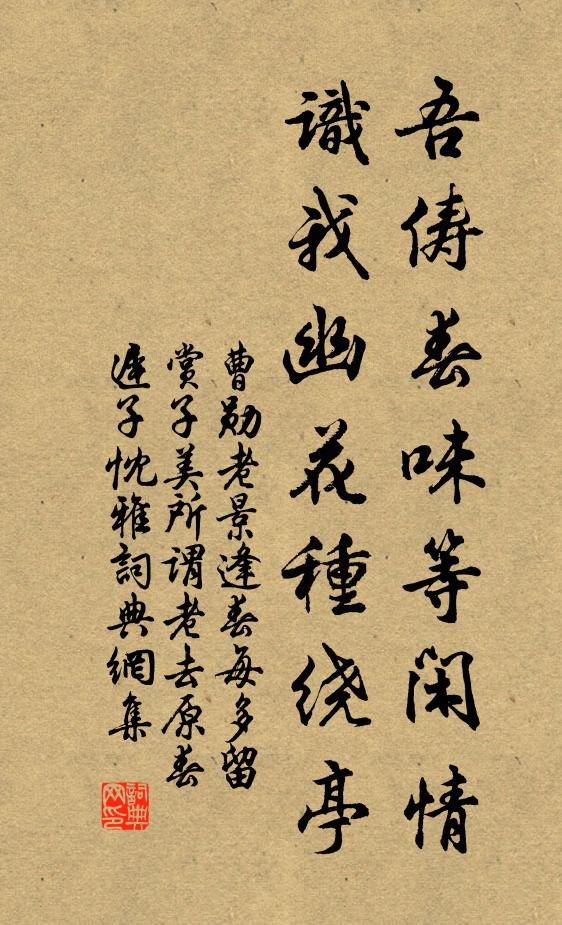 吾俦春味等闲情
識我幽花種绕亭
曹勋老景逢春每多留
赏子美所谓老去原春
遲子忱雅詞典網集
詞典网印